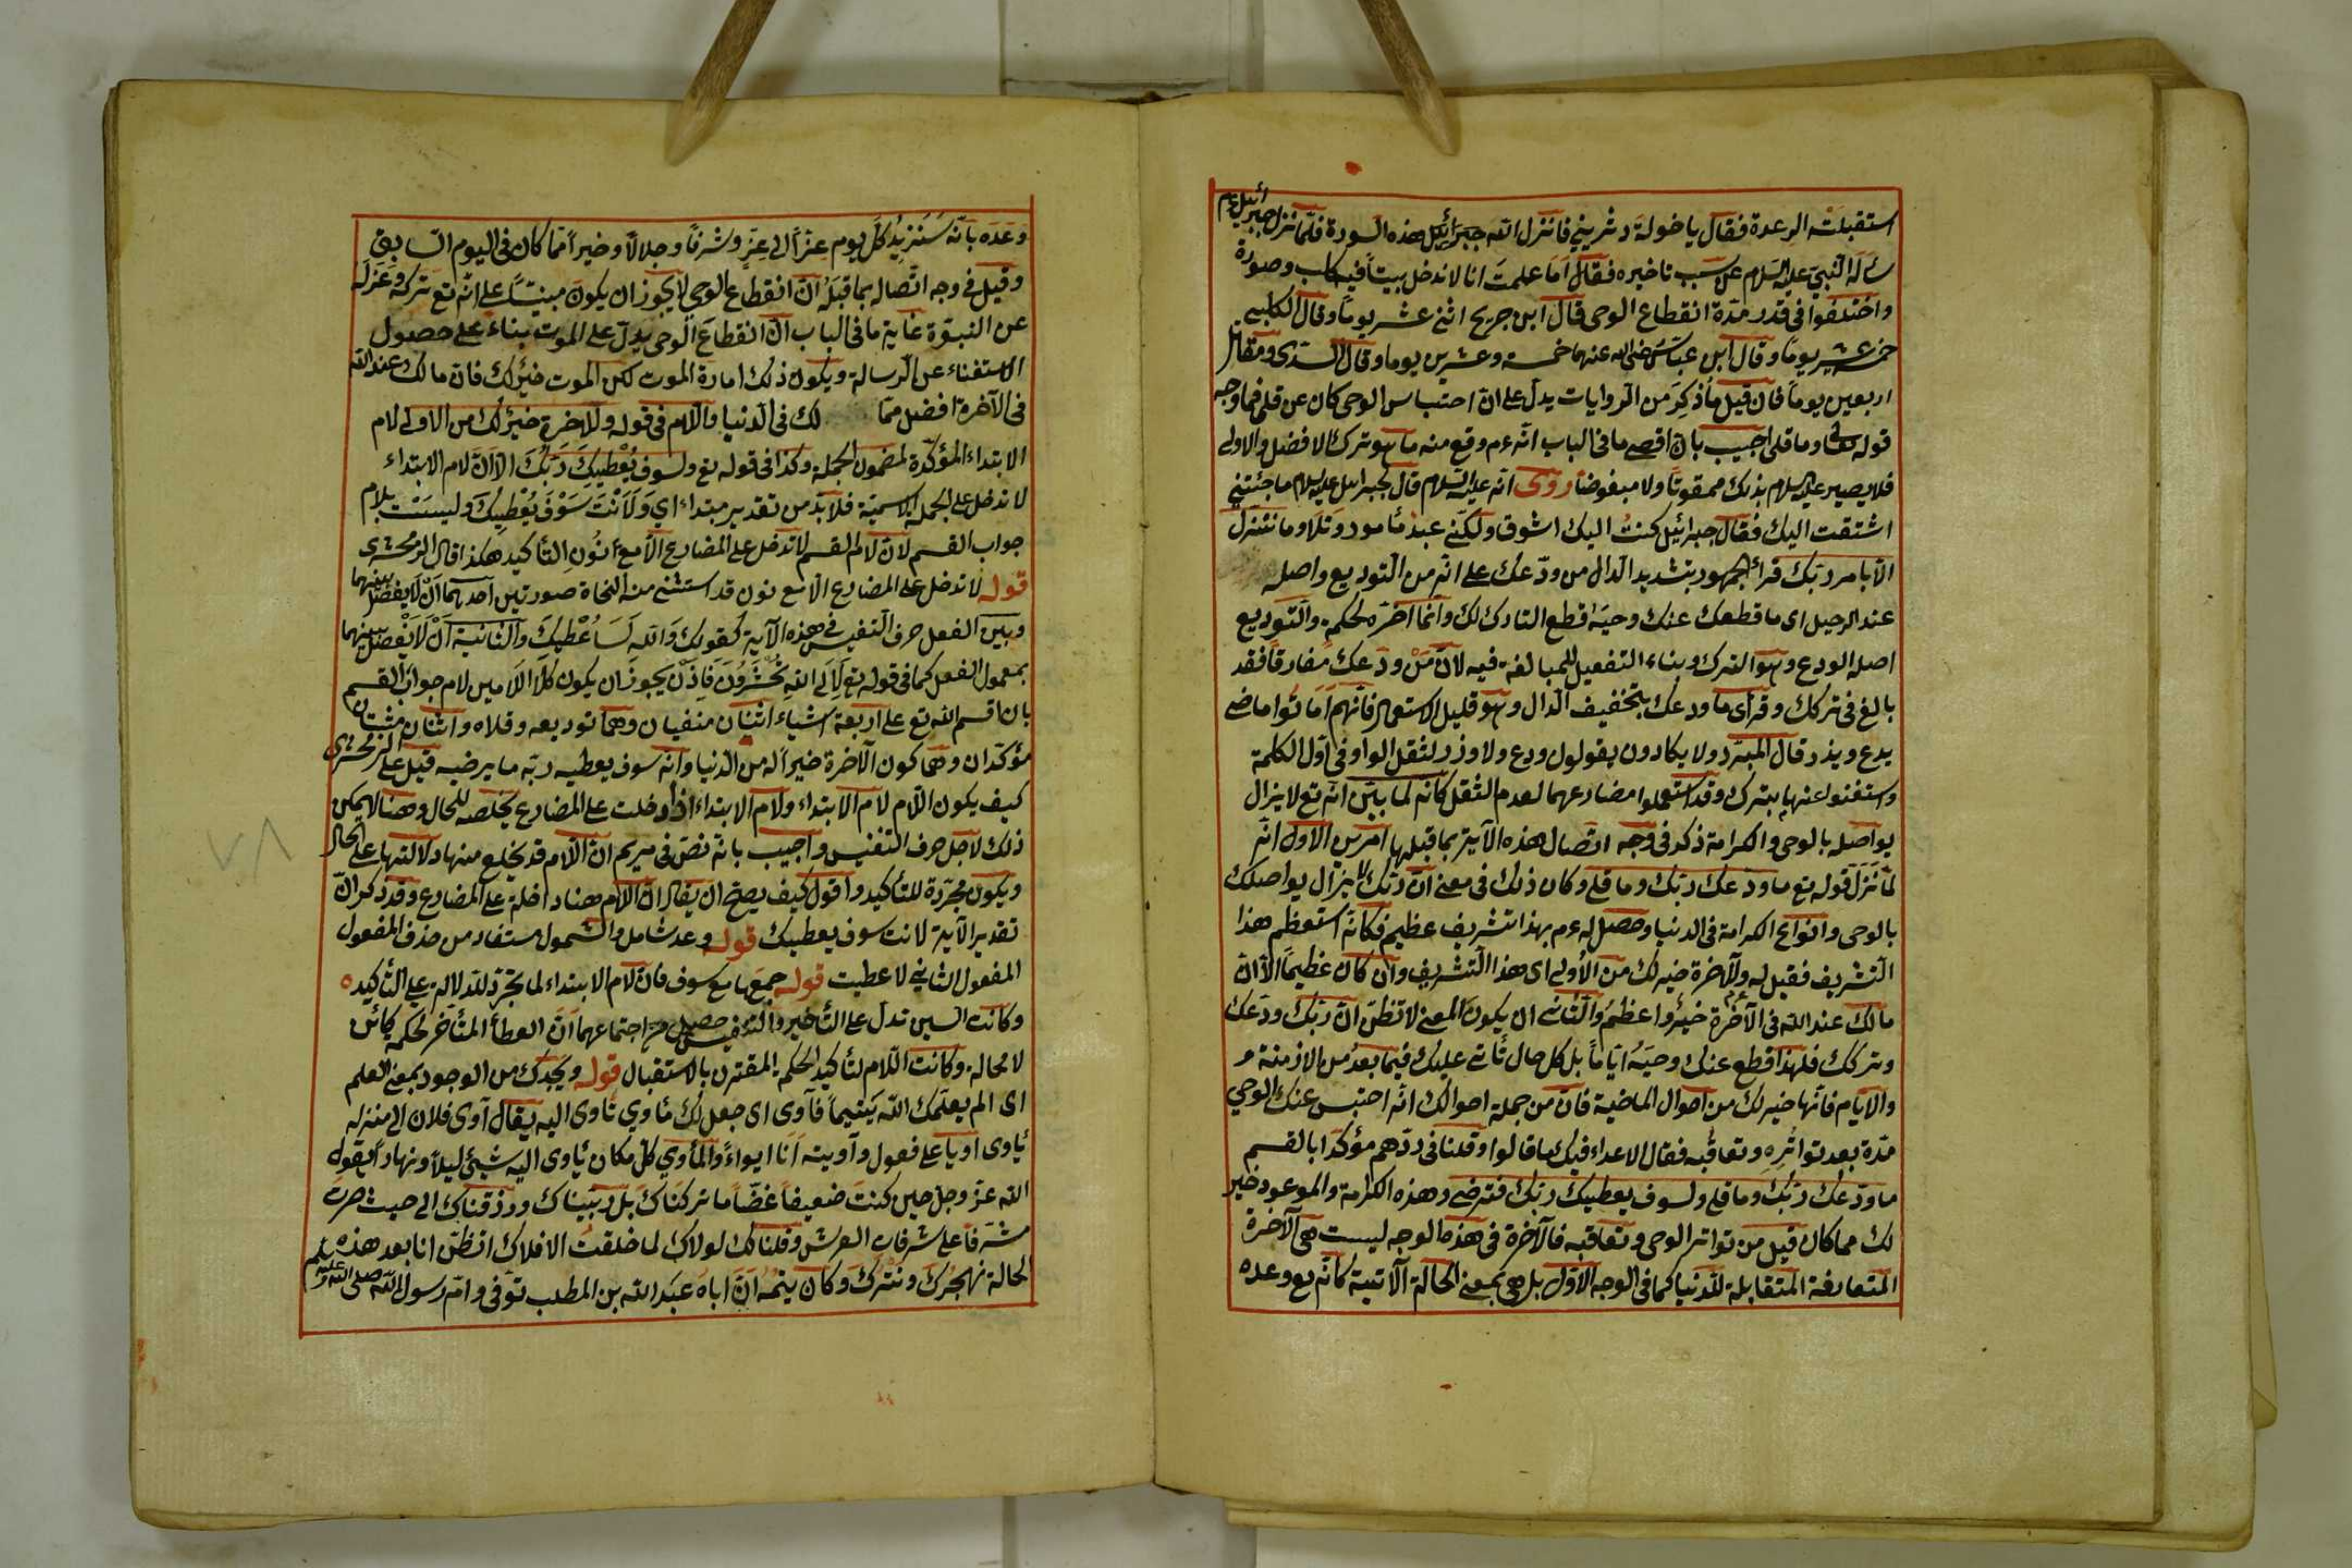 استقبلته الرعدة فقال يا خولة دثريني فانزل الله جبرائيل هذه السورة فلما نزل جبرائيل عم
سأله النبي عليه السلام عن سبب تاخيره فقال اما علمت انا لا ندخل بيتا فيه كلب وصورة
واختلفوا في قدر مدة انقطاع الوحي قال ابن جريج اثني عشر يوما وقال الكلبي
خمسة عشر يوما وقال ابن عباس رضى الله عنهما خمسة وعشرين يوما وقال السدى ومقاتل
اربعين يوما فان قيل ما ذكر من الروايات يدل على ان احتباس الوحى كان عن قلى فما وجه
قوله تعالى وما قلى اجيب بان اقصى ما في الباب انه عم وقع منه ما هو ترك الافضل والاولى
فلا يصير عليه السلام بذلك ممقوتا ولا مبغوضا روى انه عليه السلام قال لجبرائيل عليه السلام ما جئتني
اشتقت اليك فقال جبرائيل كنت اليك اشوق ولكني عبد مأمور وتلا وما نتنزل
الا بامر ربك قرأ الجمهور بتشديد الدال من ودعك على انه من التوديع واصله
عند الرحيل اى ما قطعك عنك وحيه قطع التارك لك وانما اخره لحكمة والتوديع
اصله الودع وهو الترك وبناء التفعيل للمبالغة فيه لان من ودعك مفارقا فقد
بالغ في تركك وقرأى ما ودعك بتخفيف الدال وهو قليل الاستعمال فانهم اماتوا ماضى
يدع ويذر قال المبرد ولا يكادون يقولون ودع ولا وذر لثقل الواو في اول الكلمة
واستغنوا عنها بترك وقد استعملوا مضارعهما لعدم الثقل كانه لما بين انه تع لا يزال
يواصله بالوحى والكرامة ذكر في وجه اتصال هذه الآية بما قبلها امرين الاول انه
لما نزل قوله تع ما ودعك ربك وما قلى وكان ذلك في معنى ان ربك لا يزال يواصلك
بالوحى وانواع الكرامة في الدنيا وحصل له عم بهذا تشريف عظيم فكانه استعظم هذا
التشريف فقيل له وللآخرة خير لك من الاولى اى هذا التشريف وان كان عظيما الا ان
مالك عند الله في الآخرة خير واعظم والثاني ان يكون المعنى لا تظن ان ربك ودعك
وتركك فلهذا قطع عنك وحيه اياما بل كل حال تأتى عليك فيما بعد من الازمنة
والايام فانها خير لك من احوال الماضية فان من جملة احوالك انه احتبس عنك الوحي
مدة بعد تواتره وتعاقبه فقال الاعداء فيك ما قالوا وقلنا في ردهم مؤكدا بالقسم
ما ودعك ربك وما قلى ولسوف يعطيك ربك فترضى وهذه الكرامة والموعود خير
لك مما كان قبل من تواتر الوحى وتعاقبه فالآخرة في هذه الوجه ليست هى الآخرة
المتعارفة المتقابلة للدنيا كما في الوجه الاول بل هى بمعنى الحالة الآتية كانه تع وعده
وعده بانه سنزيد كل يوم عزا الى عز وشرفا وجلالا وخيرا مما كان في اليوم السابق
وقيل في وجه اتصاله بما قبله ان انقطاع الوحي لا يجوز ان يكون مبنيا على انه تع تركه وعزله
عن النبوة غاية ما في الباب ان انقطاع الوحى يدل على الموت بناء على حصول
الاستغناء عن الرسالة ويكون ذلك امارة الموت لكن الموت خير لك فان مالك عند الله
في الآخرة افضل مما لك في الدنيا واللام في قوله وللآخرة خير لك من الاولى لام
الابتداء المؤكدة لمضمون الجملة وكذا في قوله تع ولسوف يعطيك ربك الا ان لام الابتداء
لا تدخل على الجملة الاسمية فلا بد من تقدير مبتداء اي ولانت سوف يعطيك وليست بلام
جواب القسم لان لام القسم لا تدخل على المضارع الا مع نون التأكيد هكذا قال الزمخشرى
قوله لا تدخل على المضارع الا مع نون قد استثنى منه النحاة صورتين احدهما ان لا يفصل بينهما
وبين الفعل حرف التنفيس في هذه الآية كقولك والله لسأعطيك والثانية ان لا يفصل بينهما
بمعمول الفعل كما في قوله تع لالى الله تحشرون فاذن يجوز ان يكون كلا اللامين لام جواب القسم
بان اقسم الله تع على اربعة اشياء اثنان منفيان وهما توديعه وقلاه واثنان مثبتان
مؤكدان وهما كون الآخرة خيرا له من الدنيا وانه سوف يعطيه ربه ما يرضيه قيل على الزمخشرى
كيف يكون اللام لام الابتداء ولام الابتداء اذا دخلت على المضارع يخلصه للحال وهنا لا يمكن
ذلك لاجل حرف التنفيس واجيب بانه نص في مريم ان اللام قد يخلع منها دلالتها على الحال
ويكون مجردة للتأكيد واقول كيف يصح ان يقال ان اللام هنا داخلة على المضارع وقد ذكر ان
تقدير الآية لانت سوف يعطيك قوله وعد شامل والشمول مستفاد من حذف المفعول
المفعول الثاني لاعطيت قوله جمعها مع سوف فان لام الابتداء لما تجرد للدلالة على التأكيد
وكانت السين تدل على التأخير والتنفيس حصل من اجتماعهما ان العطاء المتأخر لحكمه كائن
لا محالة وكانت اللام لتأكيد الحكم المقترن بالاستقبال قوله ويجدك من الوجود بمعنى العلم
اى الم يعلمك الله يتيما فآوى اى جعل لك مأوي تأوى اليه يقال آوى فلان الى منزله
يأوى اويا على فعول وآويته انا ايواء والمأوي كل مكان يأوى اليه شئ ليلا ونهارا يقول
الله عز وجل حين كنت ضعيفا غضا ما تركناك بل ربيناك ورزقناك الى حيث صرت
مشرفا على شرفات العرش وقلنا لك لولاك لما خلقت الافلاك اتظن انا بعد هذه
الحالة نهجرك ونترك وكان يتمه ان اباه عبد الله بن المطلب توفى وام رسول الله صلى الله عليه وسلم
٧٨